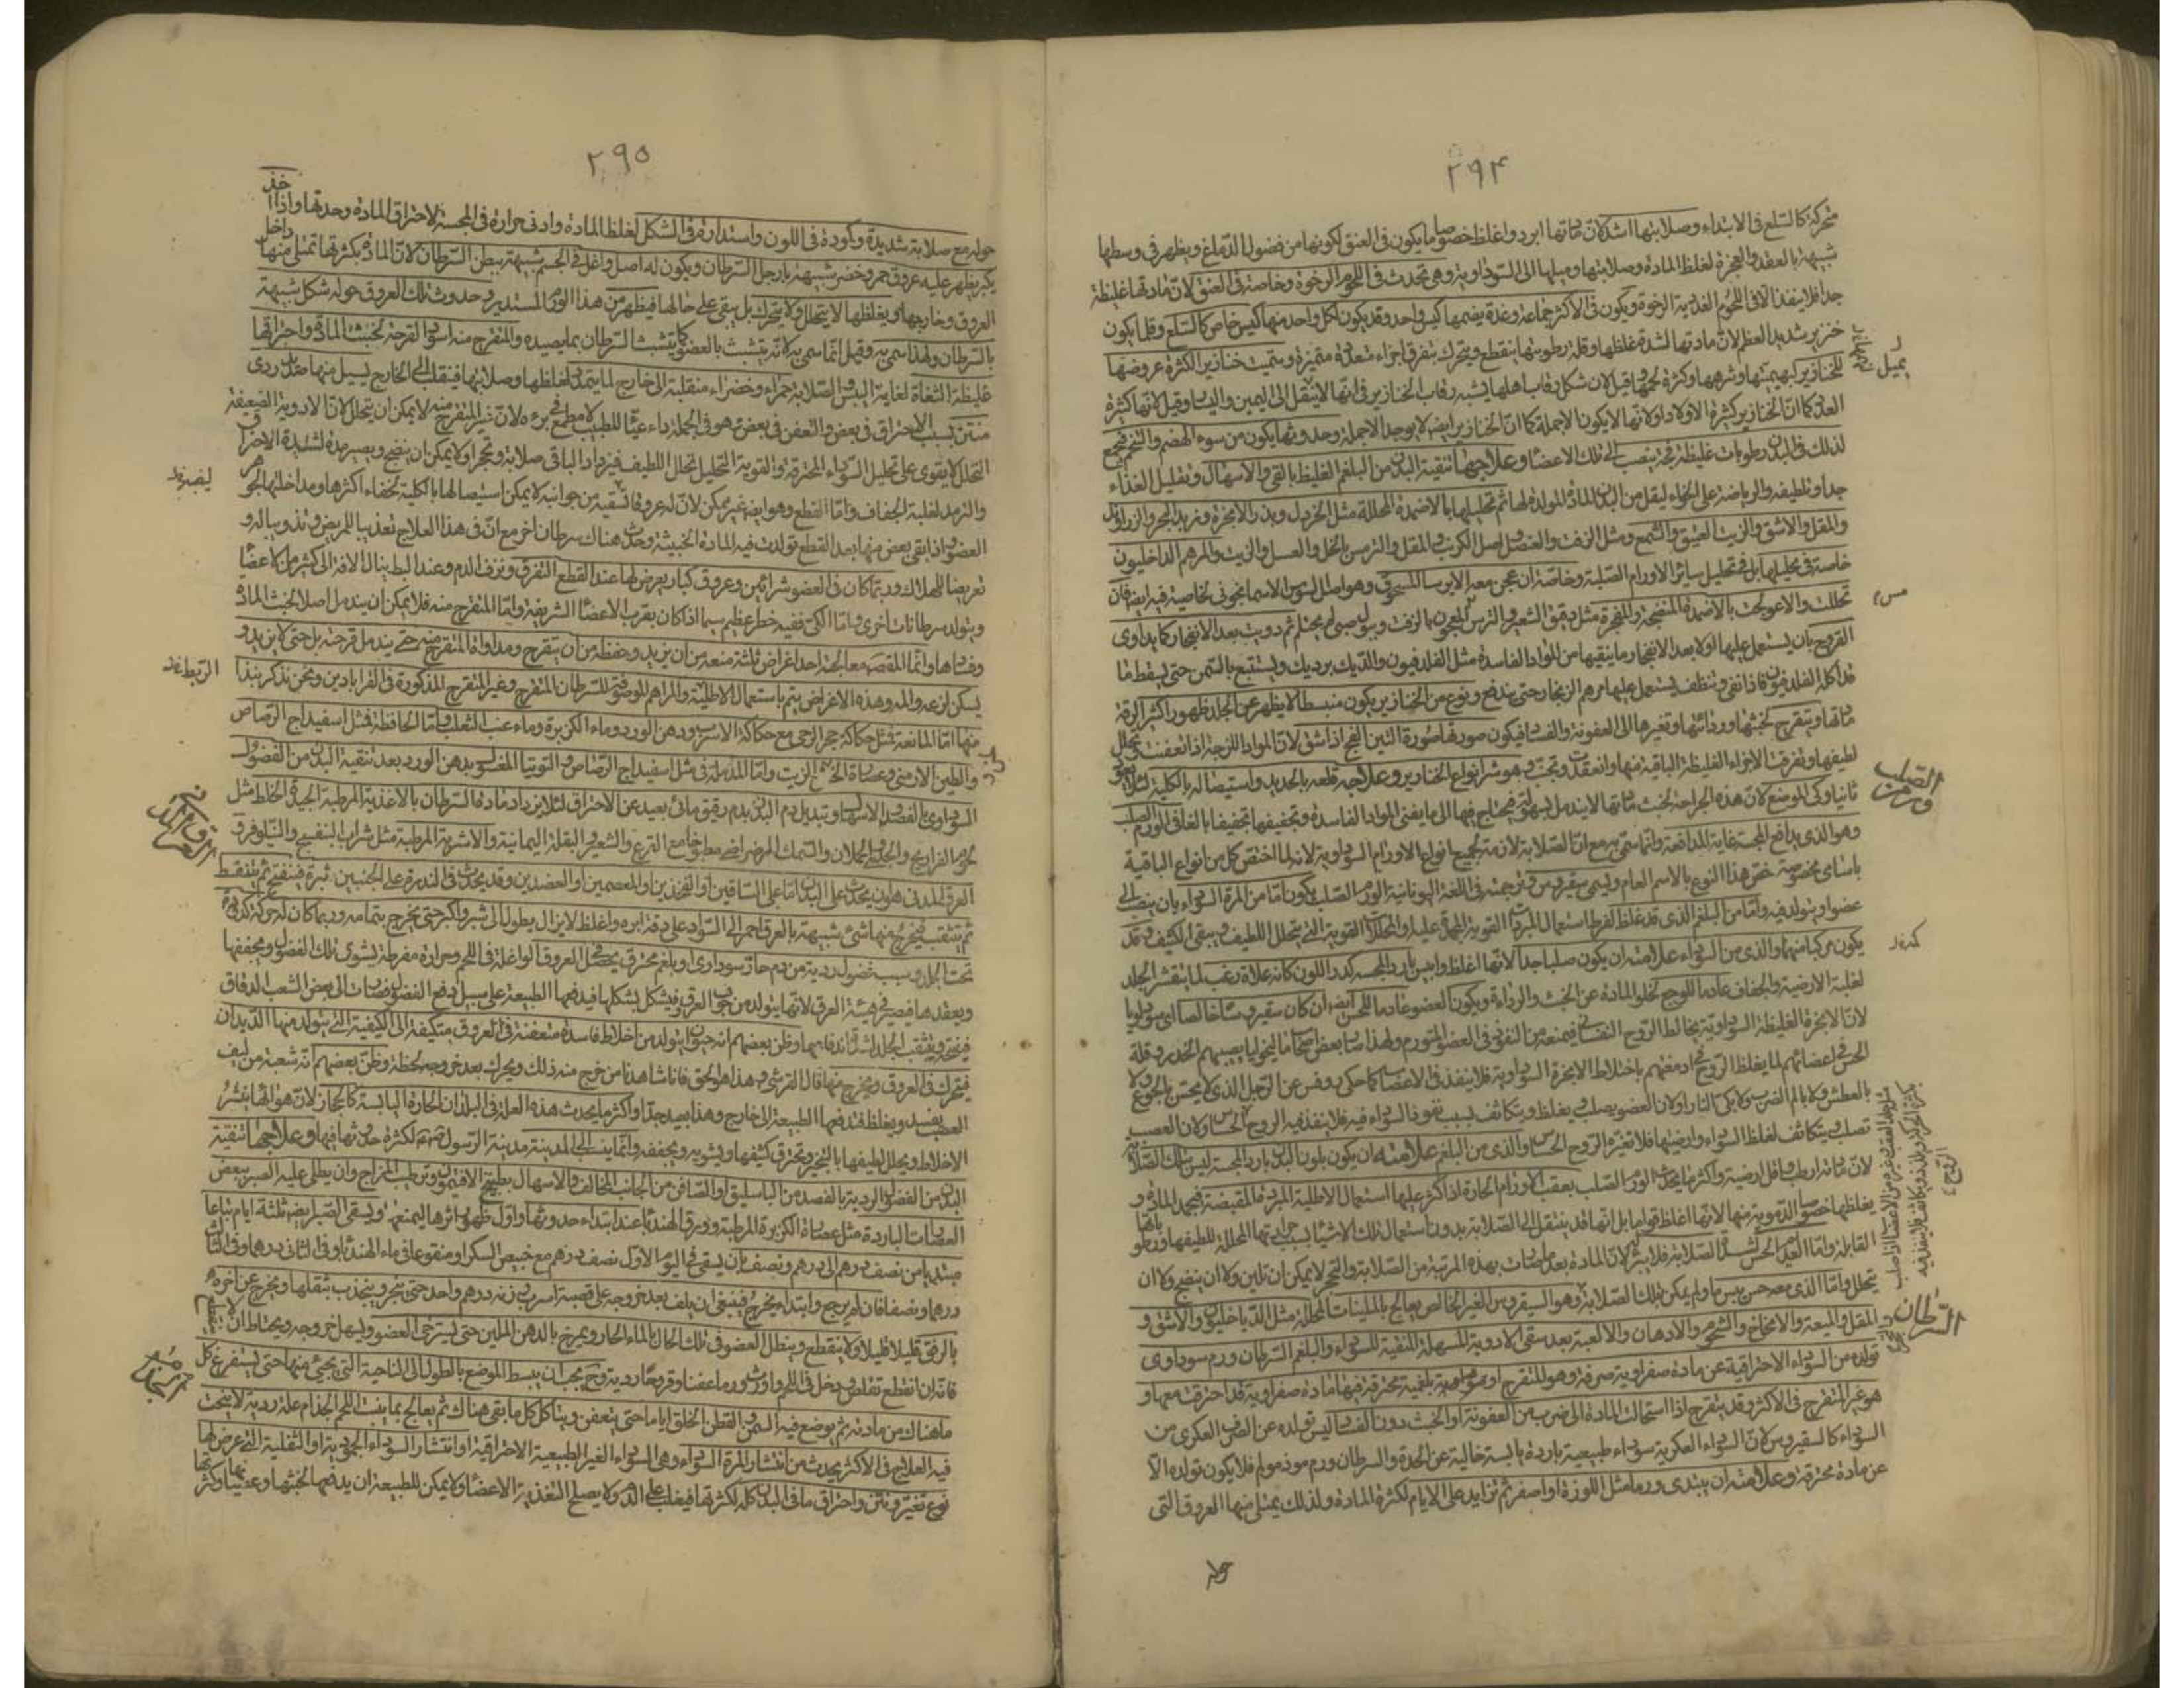 ٢٩۴
متحركة كالسلع فى الابتداء وصلابتها اشد لان مادتها ابرد واغلظ خصوصا ما يكون فى العنق لكونها من فضول الدماغ ويظهر فى وسطها
شبيهة بالعقد والعجزة لغلظ المادة وصلابتها وميلها الى السوداوية وهى تحدث فى اللحوم الرخوة وخاصة فى العنق لان مادتها غليظة
جدا فلا ينفذ الا فى اللحوم الغددية الرخوة ويكون فى الاكثر جماعة وغدة يضمها كيس واحد وقد يكون لكل واحد منها كيس خاص كالسلع وقلما يكون
خنزير شديد العظم لان مادتها لشدة غلظها وقلة رطوبتها ينقطع ويتحرك بتفرق اجزاء متعددة متميزة وسميت خنازير لكثرة عروضها
للخنازير لبهيميتها وشرهها وكثرة لحمها وقيل لان شكل رقاب اهلها يشبه رقاب الخنازير فى انها لا ينتقل الى اليمين واليسار وقيل لانها كثيرة
العدد كما ان الخنازير كثيرة الاولاد ولانها لا يكون الا جملة كما ان الخنازير ايضا لا يوجد الا جملة وحدوثها يكون من سوء الهضم والتخم فيجمع
لذلك فى البدن رطوبات غليظة فجة ينصب الى تلك الاعضاء وعلاجها تنقية البدن من البلغم الغليظ بالقى والاسهال وتقليل الغذاء
جدا وتلطيفه والرياضة على الخواء ليقل من البدن المادة المولدة لها ثم تحليلها بالاضمدة المحللة مثل الخردل وبذر الانجرة وزبد البحر والزراوند
والمقل والاشق والزيت العتيق والشمع ومثل الزفت والعنصل واصل الكرنب والمقل والترمس بالخل والعسل والزيت والمرهم الداخليون
خاصة فى تحليلها بل فى تحليل سائر الاورام الصلبة وخاصة ان عجن معه الايرسا المسحوق وهو اصل السوسن الاسمانجونى لخاصية فيه ايضا فان
تحللت والا عولجت بالاضمدة المنضجة والمفجرة مثل دقيق الشعير والترمس المعجون بالزفت وبول صبى لم يحتلم ثم دويت بعد الانفجار كما يداوى
القروح بان يستعمل عليها اولا بعد الانفجار ما ينقيها من المواد الفاسدة مثل الفلدفيون والديك برديك ويستتبع بالسمن حتى يسقط ما
قد اكله الفلدفيون فاذا نقى وتنظف يستعمل عليها مرهم الزنجار حتى يندمل ونوع من الخنازير يكون منبسطا لا يظهر عن الجلد ظهورا اكثر لرقة
مادتها ويتقرح لخبثها وردائتها وتغيرها الى العفونة والفساد فيكون صورتها صورة التين الفج اذا شق لان المواد اللزجة اذا تعفنت تحلل
لطيفها وتفرقت الاجزاء الغليظة الباقية منها وانعقدت وتحجبت وهو شر انواع الخنازير وعلاجه قلعه بالحديد واستيصاله بالكلية لئلا يعود
ثانيا وكى الموضع لان هذه الجراحة لخبث مادتها لا يندمل بسهولة فيحتاج فيها الى ما يفنى المواد الفاسدة ويجففها تجفيفا بالغا فى الورم الصلب
وهو الذى يدافع المجسة غاية المدافعة وانما سمى به مع ان الصلابة لازمة لجميع انواع الاورام السوداوية لانه لما اختص كل من انواع الباقية
باسامى مخصوصة خص هذا النوع بالاسم العام ويسمى سقيروس وترجمته فى اللغة اليونانية الورم الصلب يكون اما من المرة السوداء بان ينصب الى
عضو او يتولد فيه واما من البلغم الذى قد غلظ لفرط استعمال المبردات القوية المجمدة عليه او المحللات القوية التى يتحلل اللطيف ويبقى الكثيف وقد
يكون مركبا منهما والذى من السوداء علامته ان يكون صلبا جدا لانها اغلظ وايبس بارد المجسة كدر اللون كانه علاه زغب لما يتقشر الجلد
لغلبة الارضية والجفاف عادما للوجع لخلو المادة عن الخبث والرداءة ويكون العضو عادما للحس ايضا ان كان سقيروسا خالصا اى سوداويا
لان الابخرة الغليظة السوداوية يخالط الروح النفسانى فيمنعه من النفوذ فى العضو المتورم ولهذا صار بعض اصحاب الماليخوليا يصيبهم الخدر وقلة
الحس فى اعضائهم لما يغلظ الروح فى ادمغتهم باختلاط الابخرة السوداوية فلا ينفذ فى الاعصاب كما حكى روفس عن الرجل الذى لا يحس بالجوع ولا
بالعطش ولا بالم الضرب ولا بكى النار ولان العضو يصلب ويغلظ ويتكاثف بسبب نفوذ السوداء فيه فلا ينفذ فيه الروح الحساس ولان العصب
تصلب يتكاثف لغلظ السوداء وارضيتها فلا تغيره الروح الحساس والذى من البلغم علامته ان يكون بلون البدن بارد المجسة ليس بتلك الصلابة
لان مادته ارطب واقل ارضية واكثر ما يحدث الورم الصلب بعقب الاورام الحارة اذا اكثر عليها استعمال الاطلية المبردة المقبضة فيجمد المادة و
يغلظها خصوصا الدموية منها لانها اغلظ قواما بل انها قد ينتقل الى الصلابة بدون استعمال تلك الاشياء بسبب حرارتها المحللة للطيفها
القابلة واما العديم الحس لشدة الصلابة فلا يبرأ لان المادة بعد ما صارت بهذه المرتبة من الصلابة والتحجر لا يمكن ان تلين ولا ان ينضج ولا ان
يتحلل واما الذى معه حس يسير ما ولم يكن بتلك الصلابة وهو السقيروس الغير الخالص يعالج بالملينات المحللة مثل الدياخليون والاشق و
المقل والميعة والامخاخ والشحوم والادهان والالعبة بعد سقى الادوية المسهلة المنقية للسوداء والبلغم السرطان ورم سوداوى
تولده من السوداء الاحتراقية عن مادة صفراوية صرفة وهو المتقرح او عن مادة بلغمية محترقة فيها مادة صفراوية قد احترقت معها و
هو غير المتقرح فى الاكثر وقد يتقرح اذا استحالت المادة الى ضرب من العفونة او الخبث دون الفساد ليس تولده عن الصرف العكرى من
السوداء كالسقيروس لان السوداء العكرية سوداء طبيعية باردة يابسة خالية عن الحدة والسرطان ورم موذ مولم فلا يكون تولده الا
عن مادة محترقة وعلامته ان يبتدى ورما مثل اللوزة او اصغر ثم تزايد على الايام لكثرة المادة ولذلك يمتلى منها العروق التى
حوله
يميل
الصلب
كدر
الروح
السرطان
٢٩٥
حوله مع صلابة شديدة وكمودة فى اللون واستدارة فى الشكل لغلظ المادة وادنى حرارة فى المجسة لاحتراق المادة وحدتها واذا اخذ
يكبر يظهر عليه عروق حمر وخضر شبيهة بارجل السرطان ويكون له اصل واغل فى الجسم شبيهة ببطن السرطان لان المادة بكثرتها تمتلى منها داخل
العروق وخارجها ويغلظها لا يتحلل ولا يتحرك بل يبقى على حالها فيظهر من هذا الورم المستدير وحدوث تلك العروق حوله شكل شبيهة
بالسرطان ولهذا سمى به وقيل انما سمى به لانه يتشبث بالعضو كما يتشبث السرطان بما يصيده والمتقرح منه اسود القرحة لخبث المادة واحتراقها
غليظة الشفاة لغاية اليبس والصلابة حمراء وخضراء منقلبة الى خارج لما يتمدد لغلظها وصلابتها فينقلب الى الخارج يسيل منها صديد ردى
منتن بسبب الاحتراق فى بعض والتعفن فى بعض هو فى الجملة داء عياء للطبيب لا مطمع فى برءه لان غير المتقرح منه لا يمكن ان يتحلل لان الادوية الضعيفة
التحلل لا يقوى على تحليل السوداء المحترقة والقوية التحليل تحلل اللطيف فيزداد الباقى صلابة وتحجرا ولا يمكن ان ينضج ويصير مدة لشدة الاحتراق
والترمد لغلبة الجفاف واما القطع وهو ايضا غير ممكن لان له عروقا تسقيه من جوانبه لا يمكن استيصالها بالكلية لخفاء اكثرها ومداخلتها لجوهر
العضو واذا بقى بعض منها بعد القطع تولدت فيه المادة الخبيثة وحدث هناك سرطان اخر مع ان فى هذا العلاج تعذيبا للمريض
تعريضا للهلاك وربما كان فى العضو شرائين وعروق كبار يعرض لها عند القطع التفرق ونزف الدم وعند الربط ينال الافة الى كثير من الاعضاء
ويتولد سرطانات اخرى واما الكى ففيه خطر عظيم سيما اذا كان بقرب الاعضاء الشريفة واما المتقرح منه فلا يمكن ان يندمل اصلا لخبث المادة
وفسادها وانما المقصد معالجته احد اغراض ثلثة منعه من ان يزيد وحفظه من ان يتقرح ومداواة المتقرح منه حتى يندمل قرحته بل حتى لا يزيد و
يسكن لذعه والمه وهذه الاغراض يتم باستعمال الاطلية والمراهم الموصوفة للسرطان المتقرح وغير المتقرح المذكورة فى القرابادين ونحن نذكر نبذا
منها اما المانعة فمثل حكاكة حجر الرحى مع حكاكة الاسرب ودهن الورد وماء الكزبرة وماء عنب الثعلب واما الحافظة فمثل اسفيداج الرصاص
والطين الارمنى وعصارة الخس الزيت واما المدملة فى مثل اسفيداج الرصاص والتوتيا المغسول بدهن الورد بعد تنقية البدن من الفضول
السوداوى بالفصد والاسهال وتبديل دم البدن بدم رقيق مائى بعيد عن الاحتراق لئلا يزداد مادة السرطان بالاغذية المرطبة الجيدة الخلط مثل
لحوم الفراريج والجدى والحملان والسمك الرضراضى مطبوخا مع القرع والشعير والبقلة اليمانية والاشربة المرطبة مثل شراب البنفسج والنيلوفر فى
العرق المدينى هو ان يحدث على البدن اما على الساقين او الفخذين او المعصمين او العضدين وقد يحدث فى الندرة على الجنبين بثرة فينتفخ ثم تنفط
ثم تثقب فيخرج منها شئ شبيهة بالعرق احمر الى السواد على دقة ابرة واغلظ لا يزال يطول الى شبر واكبر حتى يخرج بتمامه وربما كان له حركة كدودية
تحت الجلد وسببه فضول ردية من دم حار سوداوى او بلغم محترق يحصل العروق الواغلة فى اللحم وحرارة مفرطة يشوى تلك الفضول ويجففها
ويعقدها فيصير فى هيئة العرق لانها يتولد من جوف العرق فيشكل بشكلها فيدفعها الطبيعة على سبيل دفع الفضل وفصلات الى بعض الشعب الدقاق
فينفجر ويثقب الجلد لشدة اندفاعها وظن بعضهم انه حيوان يتولد من اخلاط فاسدة متعفنة فى العروق متكيفة الى الكيفية التى يتولد منها الديدان
فيتحرك فى العروق ويخرج منها قال القرشى وهذا هو الحق فانا شاهدنا من خرج منه ذلك ويحرك بعد خروجه لحظة وظن بعضهم انه شعبة من ليف
العصب يفسد ويغلظ فتدفعها الطبيعة الى خارج وهذا بعيد جدا واكثر ما يحدث هذه العلة فى البلدان الحارة اليابسة كالحجاز لان هواءها ينشر
الاخلاط ويحلل لطيفها بالتبخير وتحرق كثيفها ويشويه ويجففه وانما ينسب الى المدينة مدينة الرسول لكثرة حدوثها فيها وعلاجها تنقية
البدن من الفضول الردية بالفصد من الباسليق او الصافن من الجانب المخالف والاسهال بطبيخ الافتيمون وترطيب المزاج وان يطلى عليه الصبر ببعض
العصارات الباردة مثل عصارة الكزبرة المرطبة وورق الهندباء عند ابتداء حدوثها واول ظهور اثرها ليمنعه ويسقى الصبر ايضا ثلثة ايام تباعا
مبتديا من نصف درهم الى درهم ونصف بان يسقى فى اليوم الاول نصف درهم مع خبيص السكر او منقوعا فى ماء الهندباء وفى الثانى درهما وفى الثالث
درهما ونصفا فان لم يرجع وابتداء يخرج فينبغى ان يلف بعد خروجه على قصبة اسرب زنة درهم واحد حتى ينجر وينجذب بثقلها ويخرج عن اخره
بالرفق قليلا قليلا ولا ينقطع وينطل العضو فى تلك الحال بالماء الحار ويمرخ بالدهن الملين حتى يسترخى العضو ويسهل خروجه ويحتاط ان لا ينقطع
فانه ان انقطع تقلص ودخل فى اللحم واورث ورما عفنا وقروحا ردية وح يجب ان يبسط الموضع بالطول الى الناحية التى يجئ منها حتى يستفرغ كل
ما هناك من مادته ثم يوضع فيه السمن والقطن الخلق اياما حتى يتعفن ويتاكل كل ما بقى هناك ثم يعالج بما ينبت اللحم الجذام علة ردية لا ينجح
فيه العلاج فى الاكثر يحدث من انتشار المرة السوداء وهى السوداء الغير الطبيعية الاحتراقية او انتشار السوداء الجمودية او الثفلية التى عرض لها
نوع تغير ونتن واحتراق ما فى البدن كله لكثرتها فيغلب على الدم ولا يصلح لتغذية الاعضاء ولا يمكن للطبيعة ان يدفعها لخبثها وعصيانها وكثرتها
العرق المدنى
الجذام